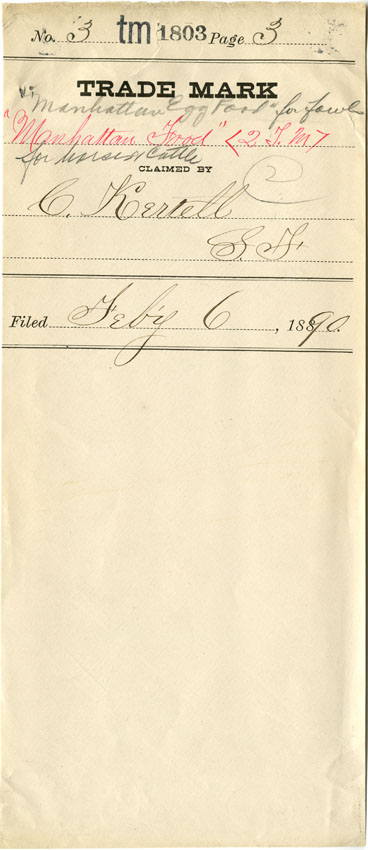 No. 3 tm 1803 Page 3
TRADE MARK
"Manhattan Egg Food" for fowls
"Manhattan Food" (2 T.M)
for horses & Cattle
CLAIMED BY
2
C. Kertell
S.F.
Filed Feb'y 6, 1890.